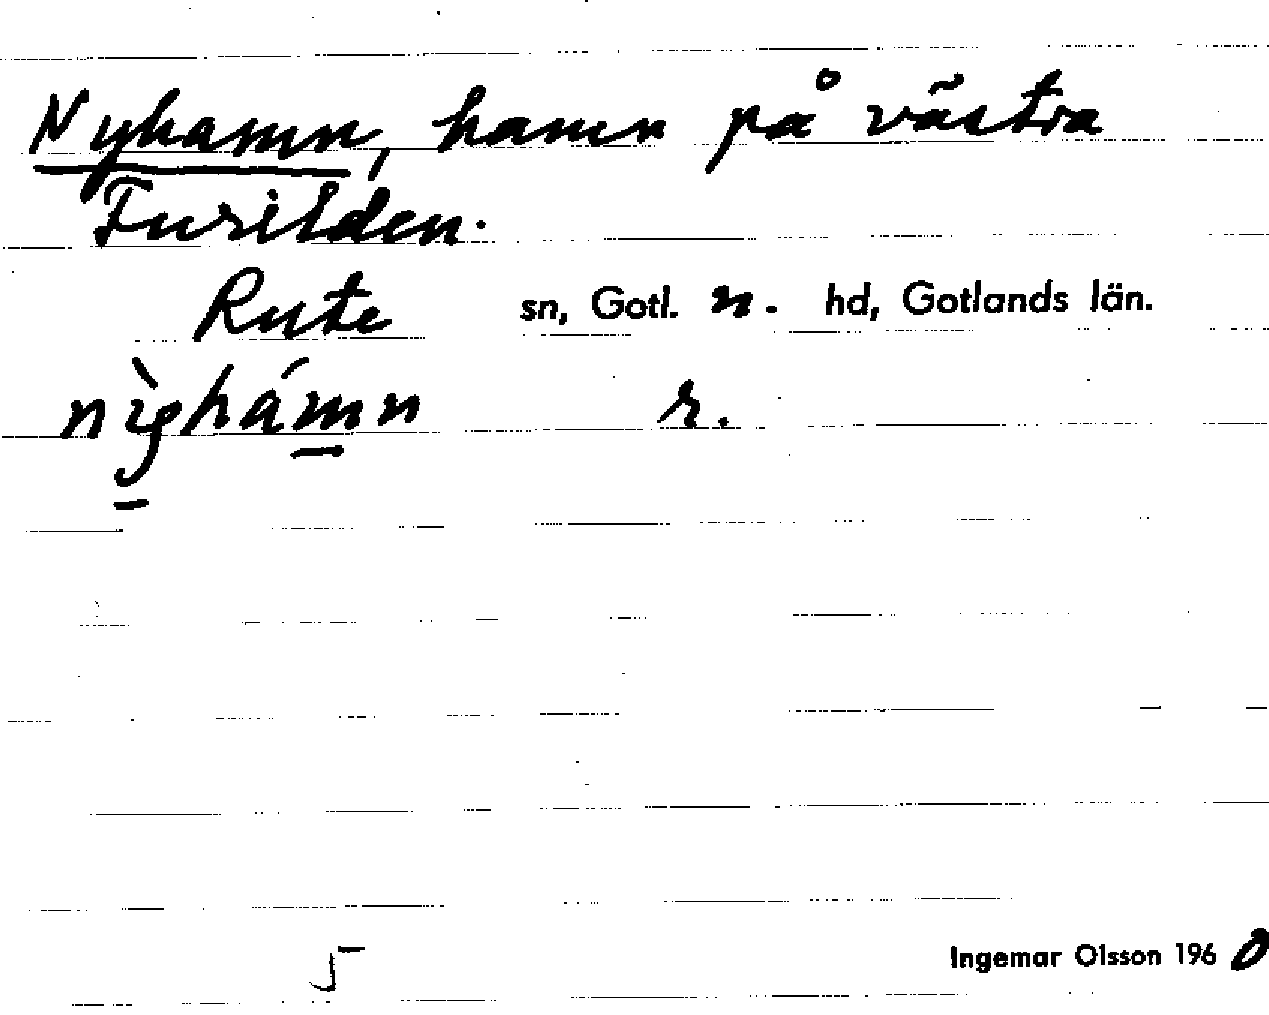 Nyhamn, hamn på västra
Furilden.
Rute sn, Gotl. n. hd, Gotlands län.
nỳhámn r.
5
Ingemar Olsson 1960